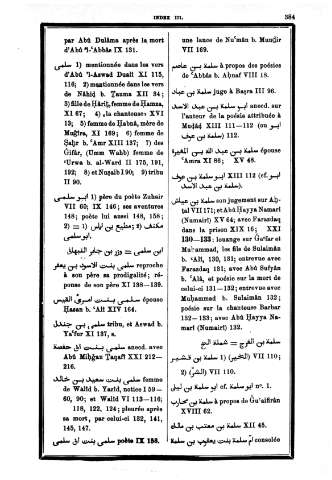 INDEX III.
384
par Abū Dulāma après la mort
d'Abū 'l-ʿAbbās IX 131.
سلمى 1) mentionnée dans les vers
d'Abū 'l-Aswad Dualī XI 115,
116; 2) mentionnée dans les vers
de Nāhiḍ b. Ṯauma XII 34;
3) fille de Ḥāriṯ, femme de Ḥamza,
XI 67; 4) la chanteuse: XVI
13; 5) femme de mère de
Muġīra, XI 169; 6) femme de
Ṣaḫr b. ʿAmr XIII 137; 7) des
Ġifār, (Umm Wahb) femme de
ʿUrwa b. al-Ward II 175, 191,
192; 8) et Nuṣaib I 90; 9) tribu
II 90.
ابو سلمى 1) père du poète Zuhair
VII 60; IX 146; ses aventures
148; poète lui aussi 148, 158;
2) = مطيع بن اياس; 3)
ابو سلمى
ابن سلمى = وزر بن جابر النبهانى
سلمى بنت الاسود بن يعفر reproche
à son père sa prodigalité; réponse
de son père XI 138—139.
سلمى بنت امرئ القيس épouse
Ḥasan b. ʿAlī XIV 164.
سلمى بن جندل tribu, et Aswad b.
Yaʿfur XI 137, a.
سلمى بنت حفصة anecd. avec
Abū Miḥǧan Ṯaqafī XXI 212—
216.
سلمى بنت سعيد بن خالد femme
de Walīd b. Yazīd, notice I 59—
60, 90; et Walīd VI 113—116;
118, 122, 124; pleurée après
sa mort, par celui-ci 132, 141,
145, 147.
سلمى بنت poète IX 158.
une lance de Nuʿmān b. Munḏir
VII 169.
سلمة بن عاصم à propos des poésies
de ʿAbbās b. Aḥnaf VIII 18.
سلمة بن عياد juge à Baṣra III 96.
سلمة بن عبد الاسد anecd. sur
l'auteur de la poésie attribuée à
Muḍāḍ XIII 111—112 (ou ابو
سلمة) 112.
سلمة بن عبد الله بن المغيرة épouse
ʿAmra XI 86; XV 48.
ابو سلمة بن عوف XIII 112 (cf. ابو
سلمة بن عبد الاسد).
سلمة بن عياش son jugement sur Aḫṭal
VII 171; et Abū Ḥayya Namarī
(Numairī) XV 64; avec Farazdaq
dans la prison XIX 16; XXI
130—133; louange sur Ǧaʿfar et
Muḥammad, les fils de Sulaimān
b. ʿAlī, 130, 131; entrevue avec
Farazdaq 131; avec Abū Sufyān
b. ʿAlā, et poésie sur la mort de
celui-ci 131—132; entrevue avec
Muḥammad b. Sulaimān 132;
poésie sur la chanteuse Barbar
132—133; avec Abū Ḥayya Namarī
(Numairī) 132.
سلمة بن الفرج =
سلمة بن قشير 1) (الخير) VII 110;
2) (الشر) VII 110.
ابو سلمة بن cf. ابو سلمة n°. 1.
سلمة بن محارب à propos de Ġuʿaifirān
XVIII 62.
سلمة بن معتب بن مالك XII 45.
ام سلمة بنت يعقوب بن سلمة consolée